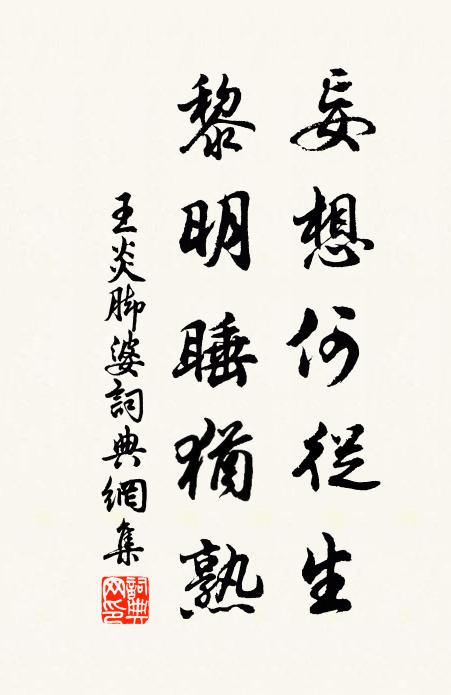 妄想何從生
黎明睡猶熟
王炎脚婆詞典網集
詞典网印